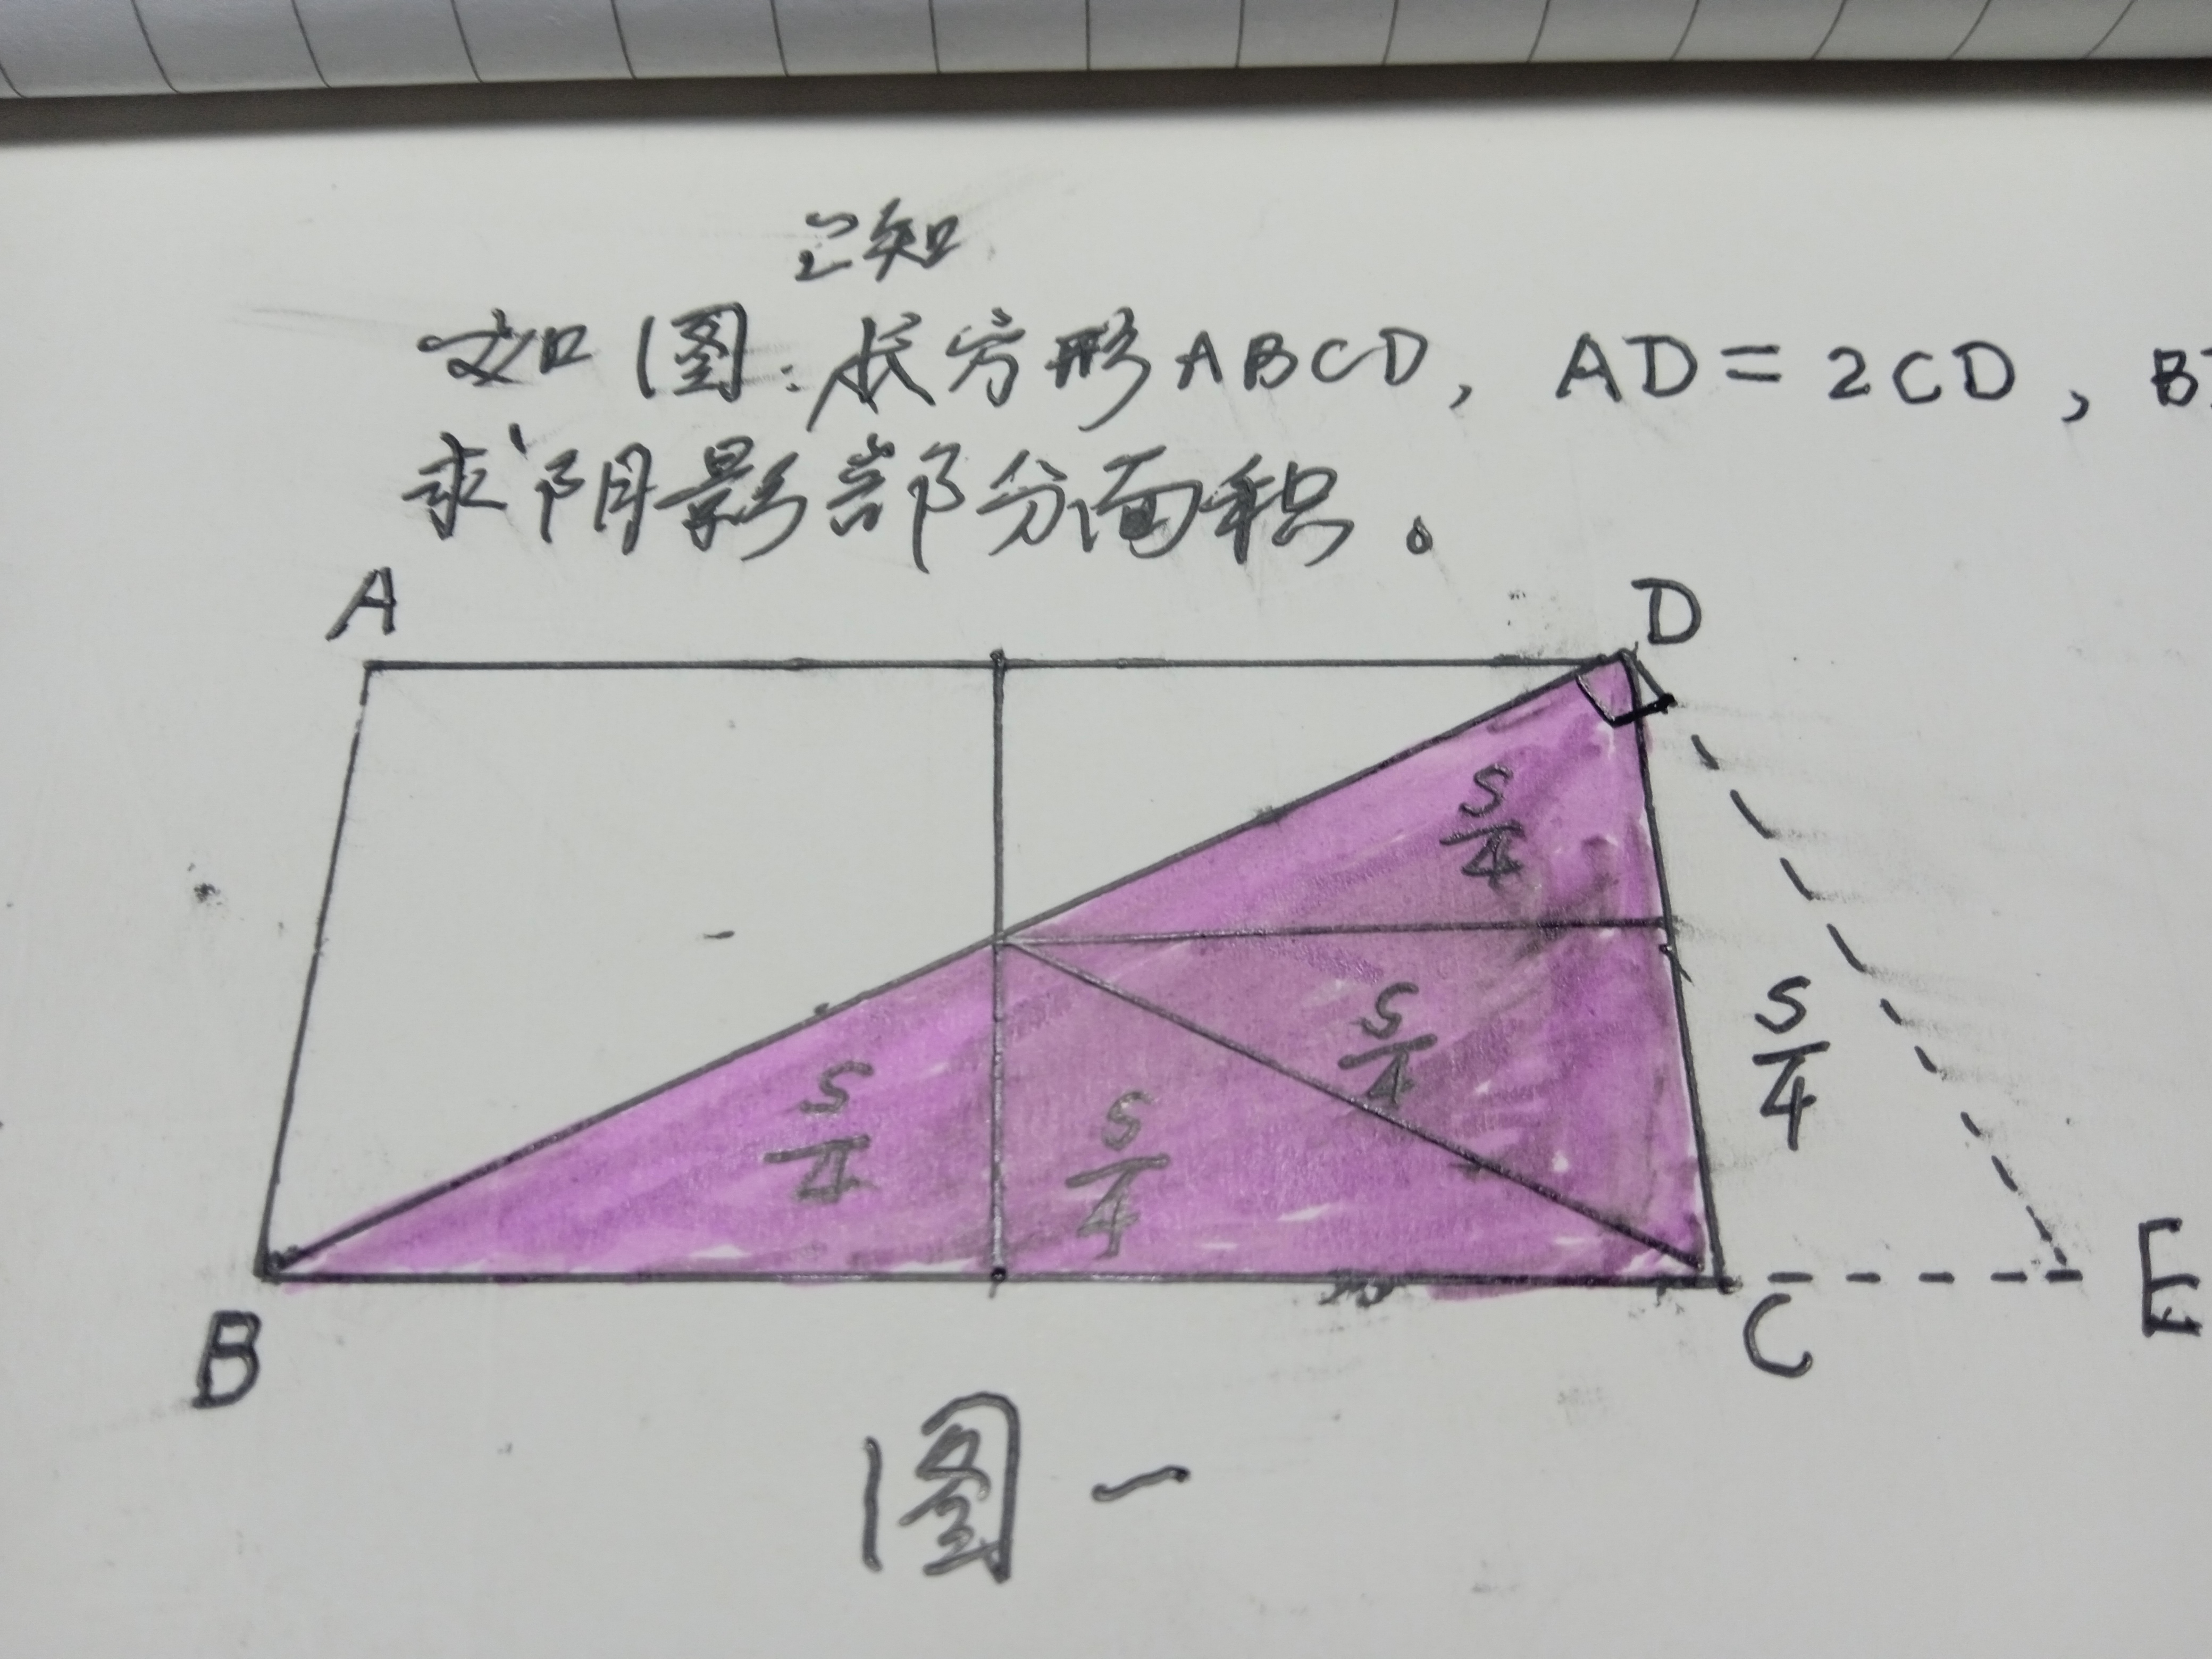 已知
如图:长方形ABCD, AD=2CD, B
求阴影部分面积。
A
D
S/4
S/4
S/4
S/4
S/4
B
C
E
图一